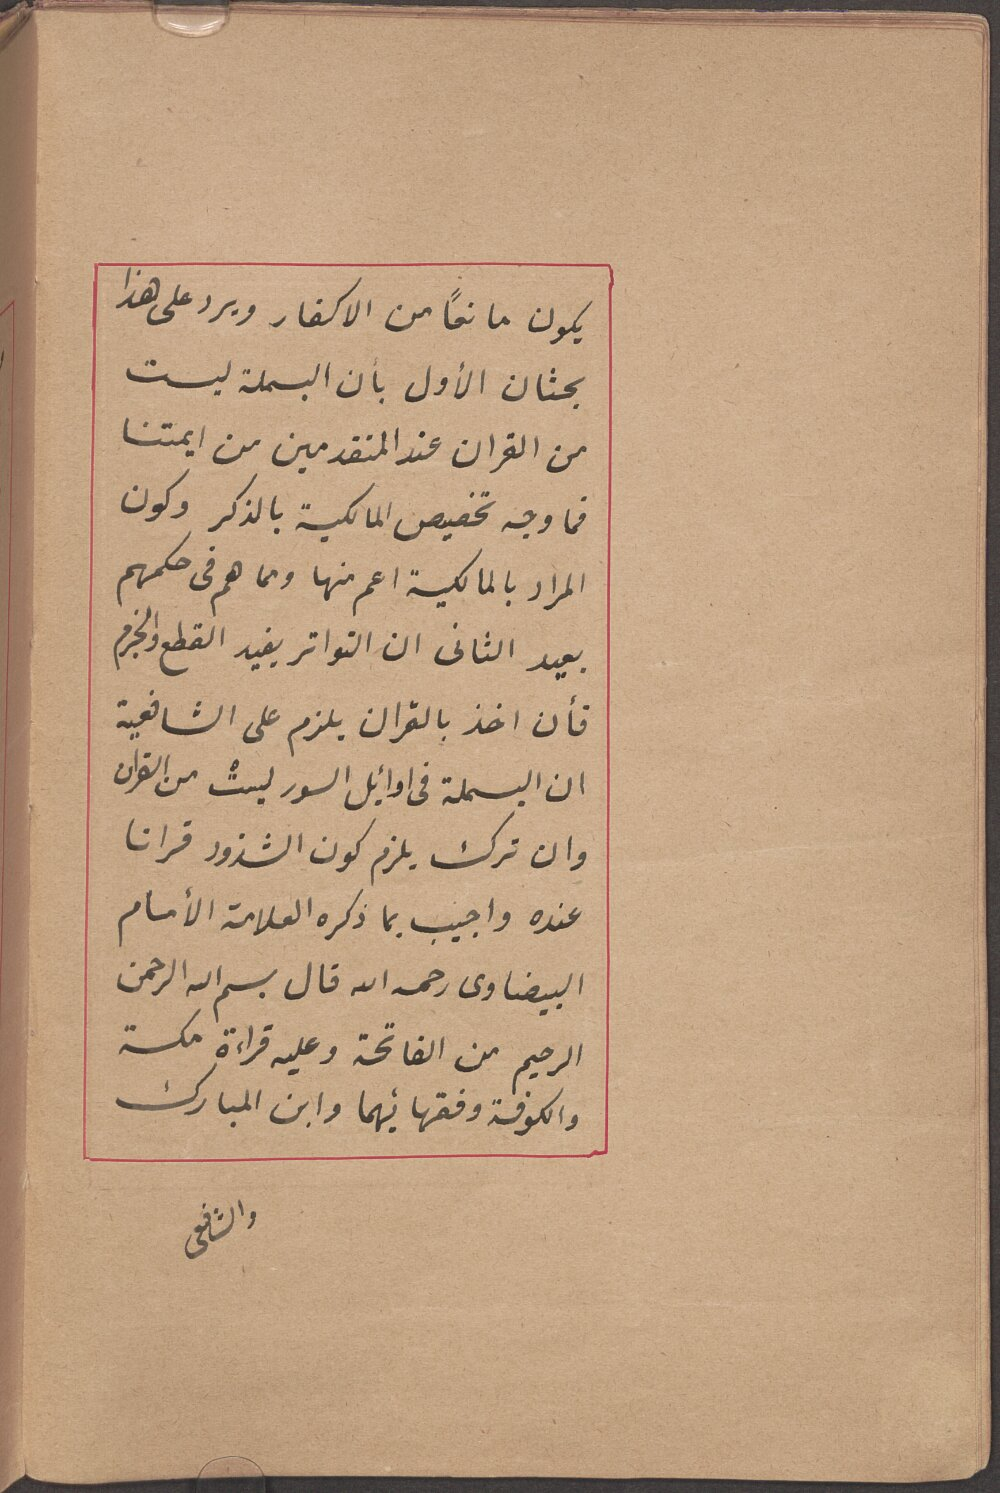 يكون مانعًا من الاكفار ويرد على هذا
بحثان الأول بأن البسملة ليست
من القران عند المتقدمين من ايمتنا
فما وجه تخصيص المالكية بالذكر وكون
المراد بالمالكية اعم منها ومما هم فى حكمهم
بعيد الثانى ان التواتر يفيد القطع والجزم
فأن اخذ بالقران يلزم على الشافعية
ان البسملة فى اوائل السور ليستْ من القران
وان ترك يلزم كون الشذوذ قرانا
عنده واجيب بما ذكره العلامة الأمام
البيضاوى رحمه الله قال بسم الله الرحمن
الرحيم من الفاتحة وعليه قراءة مكة
والكوفة وفقهائهما وابن المبارك
والشافعى